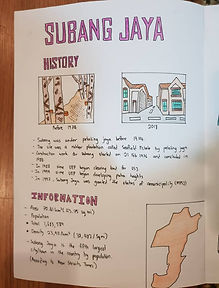 SUBANG JAYA
HISTORY
Before 1976
2013
- Subang was under petaling jaya before 1976
- The site was a rubber plantation called Seafield Estate by petaling jaya
- Construction work at Subang started on 21 Feb 1976 and concluded in
1988
- In 1988 sime UEP began clearing land for USJ
- In 1999 sime UEP began developing putra heights
- In 1997, Subang was granted the status of municipality (MPSJ)
INFORMATION
- Area
- Population
- Total
- Density
- Subang Jaya is the fifth largest
city/town in the country by population
(According to New Straits Times)